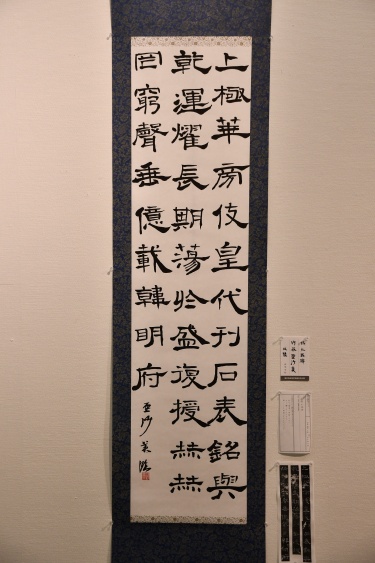 上極華旁伎皇代刊石表銘與
乾運燿長期蕩於盛復授赫赫
罔窮聲垂億載韓明府